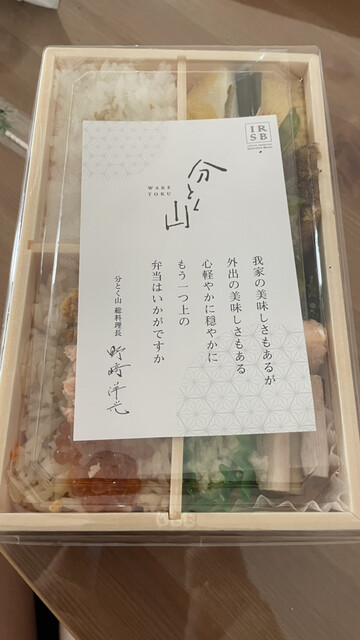 IR
SB
分とく山
WAKE
TOKU
我家の美味しさもあるが
外出の美味しさもある
心軽やかに穏やかに
もう一つ上の
弁当はいかがですか
分とく山 総料理長
野﨑洋光